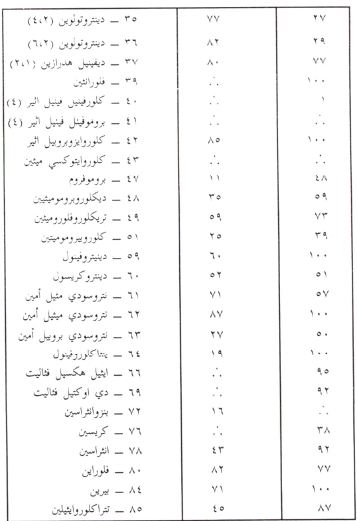 ٣٥ – دينتروتولوين (٤،٢) ٧٧ ٢٧
٣٦ – دينتروتولوين (٦،٢) ٨٢ ٢٩
٣٧ – ديفينيل هدرازين (٢،١) ٨٠ ٧٧
٣٩ – فلورانثين ∴ ١٠٠
٤٠ – كلورفينيل فينيل اثير (٤) ∴ ١
٤١ – بروموفينل فينيل اثير (٤) ∴ ∴
٤٢ – كلوروايزوبروبيل اثير ٨٥ ١٠٠
٤٣ – كلوروايتوكسي ميثين ∴ ∴
٤٧ – بروموفروم ١١ ٤٨
٤٨ – ديكلوروبروموميثيين ٣٥ ٥٩
٤٩ – تريكلوروفلوروميثين ٥٩ ٧٣
٥١ – كلوروبيروموميتين ٢٥ ٣٩
٥٩ – دينيتروفينول ٦٠ ١٠٠
٦٠ – دينتروكريسول ٥٢ ٥١
٦١ – نتروسودي مثيل أمين ٧١ ٥٧
٦٢ – نتروسودي ميثيل أمين ٨٧ ١٠٠
٦٣ – نتروسودي بروبيل أمين ٢٧ ٥٠
٦٤ – پنتاكلوروفينول ١٩ ١٠٠
٦٦ – ايثيل هكسيل فثاليت ∴ ٩٥
٦٩ – دي اوكتيل فثاليت ∴ ٩٢
٧٢ – بنزوانثراسين ١٦ ∴
٧٦ – كريسين ∴ ٣٨
٧٨ – انثراسين ٤٣ ٩٢
٨٠ – فلوراين ٨٢ ٧٧
٨٤ – بيرين ٧١ ١٠٠
٨٥ – تتراكلوروايثيلين ٤٥ ٨٧